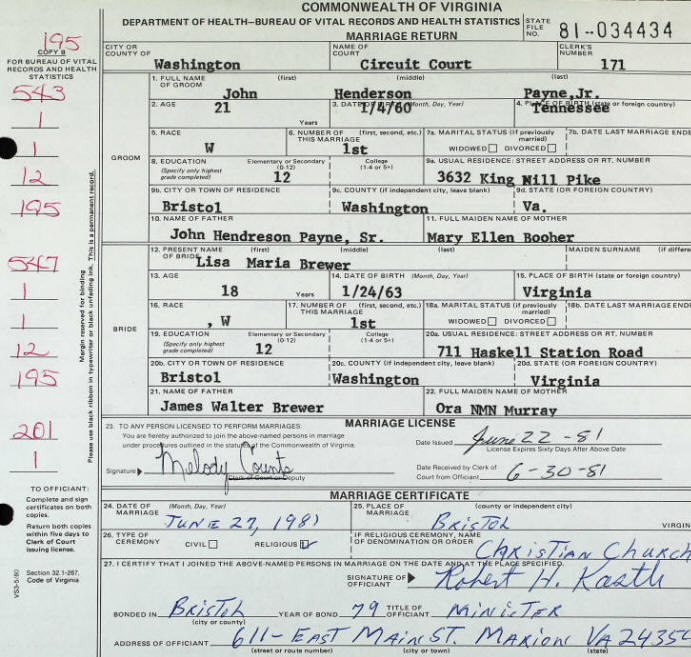 COMMONWEALTH OF VIRGINIA
DEPARTMENT OF HEALTH—BUREAU OF VITAL RECORDS AND HEALTH STATISTICS
MARRIAGE RETURN
STATE FILE NO. 81--034434
195
COPY B
FOR BUREAU OF VITAL
RECORDS AND HEALTH
STATISTICS
CITY OR COUNTY OF Washington
NAME OF COURT Circuit Court
CLERK'S NUMBER 171
543
1
1
12
195
547
1
1
12
195
201
1
GROOM
1. FULL NAME OF GROOM (first) (middle) (last)
John Henderson Payne,Jr.
2. AGE 21 Years
3. DATE OF BIRTH (Month, Day, Year) 1/4/60
4. PLACE OF BIRTH (state or foreign country) Tennessee
5. RACE W
6. NUMBER OF THIS MARRIAGE (first, second, etc.) 1st
7a. MARITAL STATUS (if previously married) WIDOWED DIVORCED
7b. DATE LAST MARRIAGE ENDE
8. EDUCATION (Specify only highest grade completed) Elementary or Secondary (0-12) 12 College (1-4 or 5+)
9a. USUAL RESIDENCE: STREET ADDRESS OR RT. NUMBER
3632 King Mill Pike
9b. CITY OR TOWN OF RESIDENCE Bristol
9c. COUNTY (if independent city, leave blank) Washington
9d. STATE (OR FOREIGN COUNTRY) Va.
10. NAME OF FATHER John Hendreson Payne, Sr.
11. FULL MAIDEN NAME OF MOTHER Mary Ellen Booher
BRIDE
12. PRESENT NAME OF BRIDE (first) (middle) (last) MAIDEN SURNAME (if differe
Lisa Maria Brewer
13. AGE 18 Years
14. DATE OF BIRTH (Month, Day, Year) 1/24/63
15. PLACE OF BIRTH (state or foreign country) Virginia
16. RACE , W
17. NUMBER OF THIS MARRIAGE (first, second, etc.) 1st
18a. MARITAL STATUS (if previously married) WIDOWED DIVORCED
18b. DATE LAST MARRIAGE ENDE
19. EDUCATION (Specify only highest grade completed) Elementary or Secondary (0-12) 12 College (1-4 or 5+)
20a. USUAL RESIDENCE: STREET ADDRESS OR RT. NUMBER
711 Haskell Station Road
20b. CITY OR TOWN OF RESIDENCE Bristol
20c. COUNTY (if independent city, leave blank) Washington
20d. STATE (OR FOREIGN COUNTRY) Virginia
21. NAME OF FATHER James Walter Brewer
22. FULL MAIDEN NAME OF MOTHER Ora NMN Murray
Margin reserved for binding
Please use black ribbon in typewriter or black unfading ink. This is a permanent record.
MARRIAGE LICENSE
23. TO ANY PERSON LICENSED TO PERFORM MARRIAGES:
You are hereby authorized to join the above-named persons in marriage
under procedures outlined in the statutes of the Commonwealth of Virginia.
Date Issued June 22 -81
License Expires Sixty Days After Above Date
Signature Melody Counts
Clerk of Court or Deputy
Date Received by Clerk of Court from Official 6-30-81
TO OFFICIANT:
Complete and sign
certificates on both
copies.
Return both copies
within five days to
Clerk of Court
issuing license.
Section 32.1-267,
Code of Virginia
VS3-5/80
MARRIAGE CERTIFICATE
24. DATE OF MARRIAGE (Month, Day, Year) JUNE 27, 1981
25. PLACE OF MARRIAGE (county or independent city) BRISTOL VIRGIN
26. TYPE OF CEREMONY CIVIL RELIGIOUS
IF RELIGIOUS CEREMONY, NAME OF DENOMINATION OR ORDER CHRISTIAN CHURCH
27. I CERTIFY THAT I JOINED THE ABOVE-NAMED PERSONS IN MARRIAGE ON THE DATE AND AT THE PLACE SPECIFIED.
SIGNATURE OF OFFICIANT Robert H. Kastle
BONDED IN BRISTOL (city or county) YEAR OF BOND 79 TITLE OF OFFICIANT MINISTER
ADDRESS OF OFFICIANT 611- EAST MAIN ST. MARION VA 24354
(street or route number) (city or town) (state)